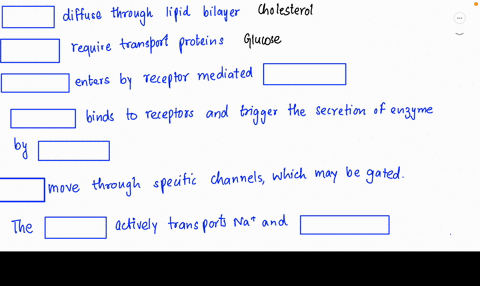 diffuse through lipid bilayer Cholesterol
require transport proteins Glucose
enters by receptor mediated
binds to receptors and trigger the secretion of enzyme
by
move through specific channels, which may be gated.
The actively transports Na⁺ and